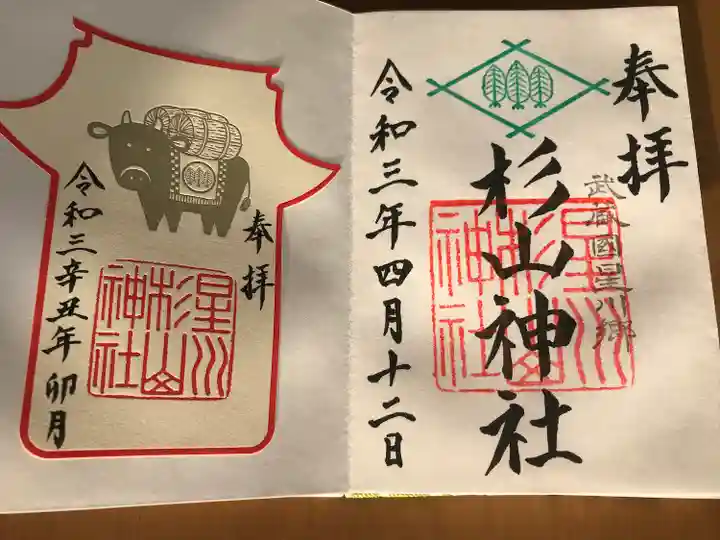 奉拝
武蔵國星川郷
杉山神社
星川杉山神社
令和三年四月十二日
奉拝
星川杉山神社
令和三辛丑年 卯月